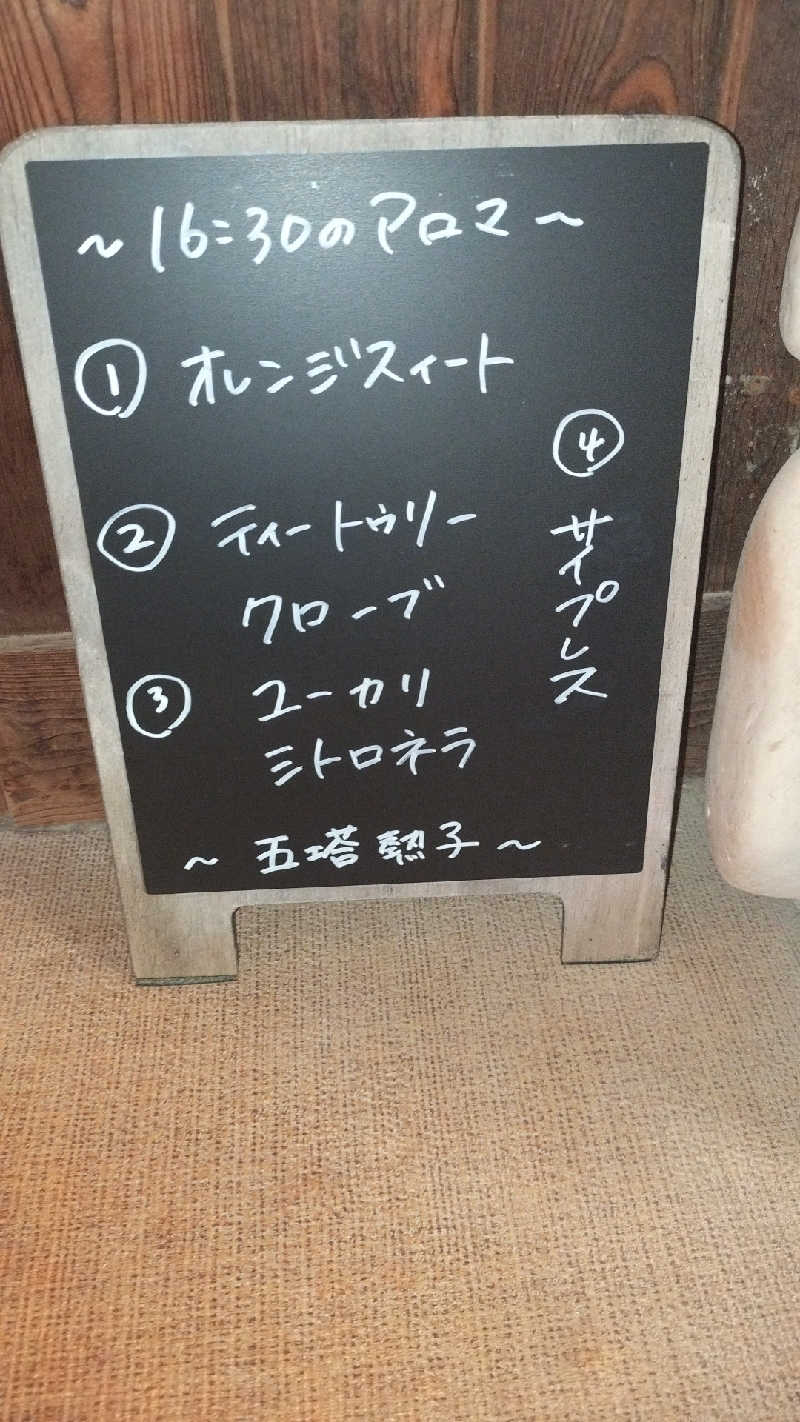 ~16:30のアロマ~
① オレンジスィート
② ティートゥリー
クローブ
③ ユーカリ
シトロネラ
④ サイプレス
~五塔熱子~